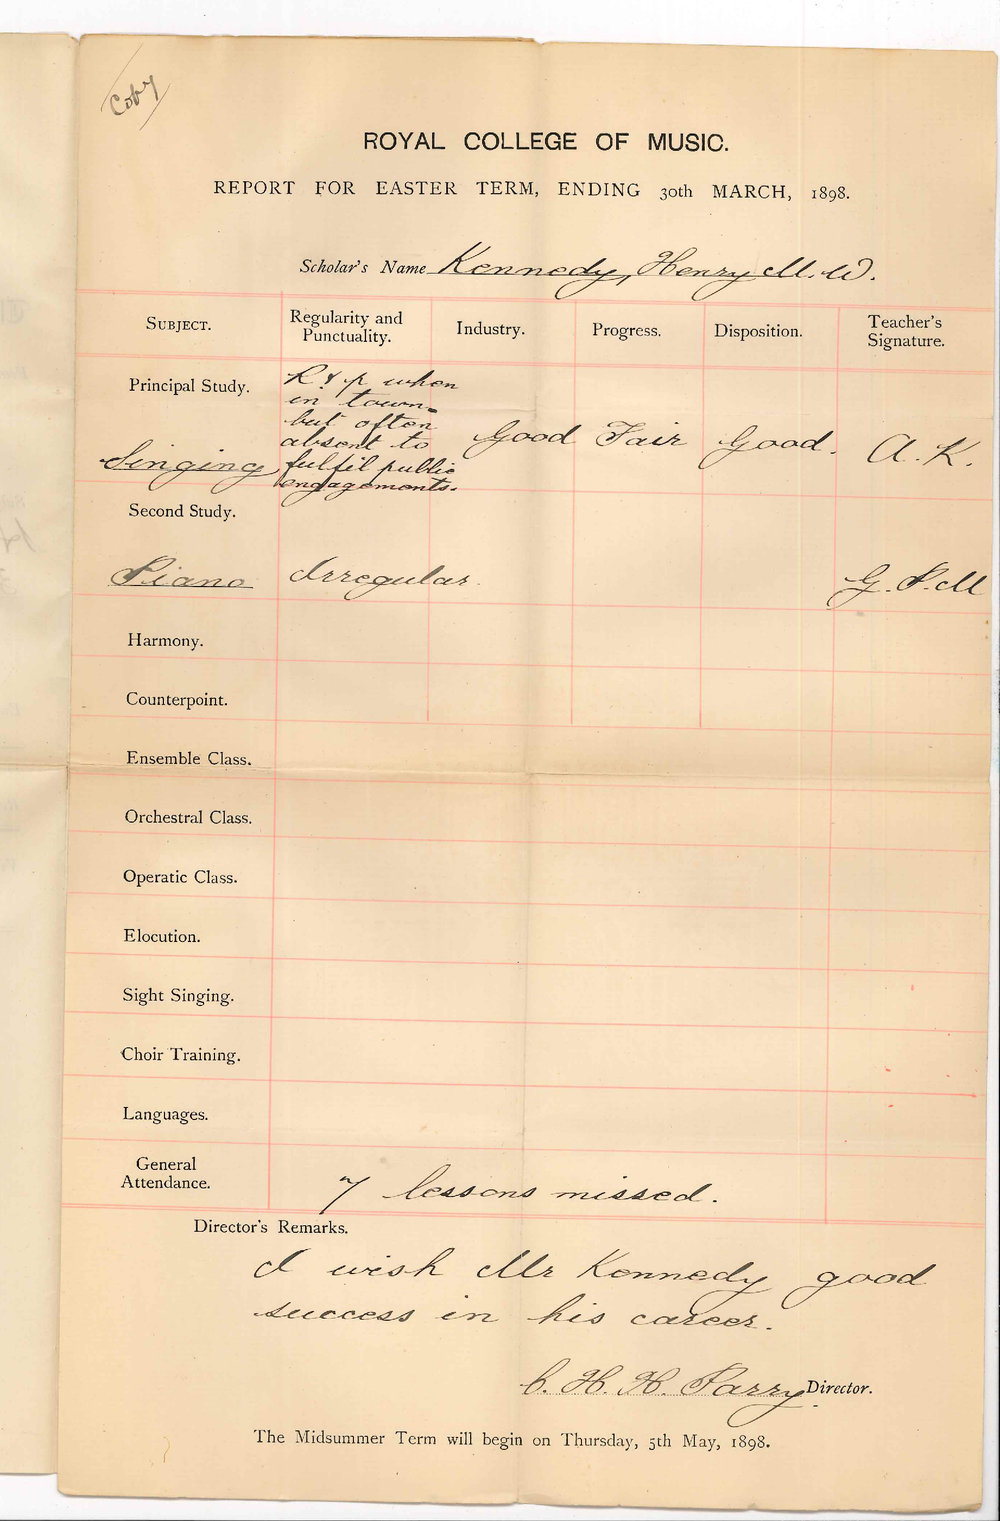 Copy
ROYAL COLLEGE OF MUSIC.
REPORT FOR EASTER TERM, ENDING 30th MARCH, 1898.
Scholar's Name Kennedy, Henry M. W.
SUBJECT. Regularity and Punctuality. Industry. Progress. Disposition. Teacher's Signature.
Principal Study.
R & p when
in town -
but often
absent to
Singing fulfil public Good Fair Good. A. K.
engagements.
Second Study.
Piano Irregular. G. P. M
Harmony.
Counterpoint.
Ensemble Class.
Orchestral Class.
Operatic Class.
Elocution.
Sight Singing.
Choir Training.
Languages.
General
Attendance. 7 lessons missed.
Director's Remarks.
I wish Mr Kennedy good
success in his career.
C. H. H. Parry Director.
The Midsummer Term will begin on Thursday, 5th May, 1898.